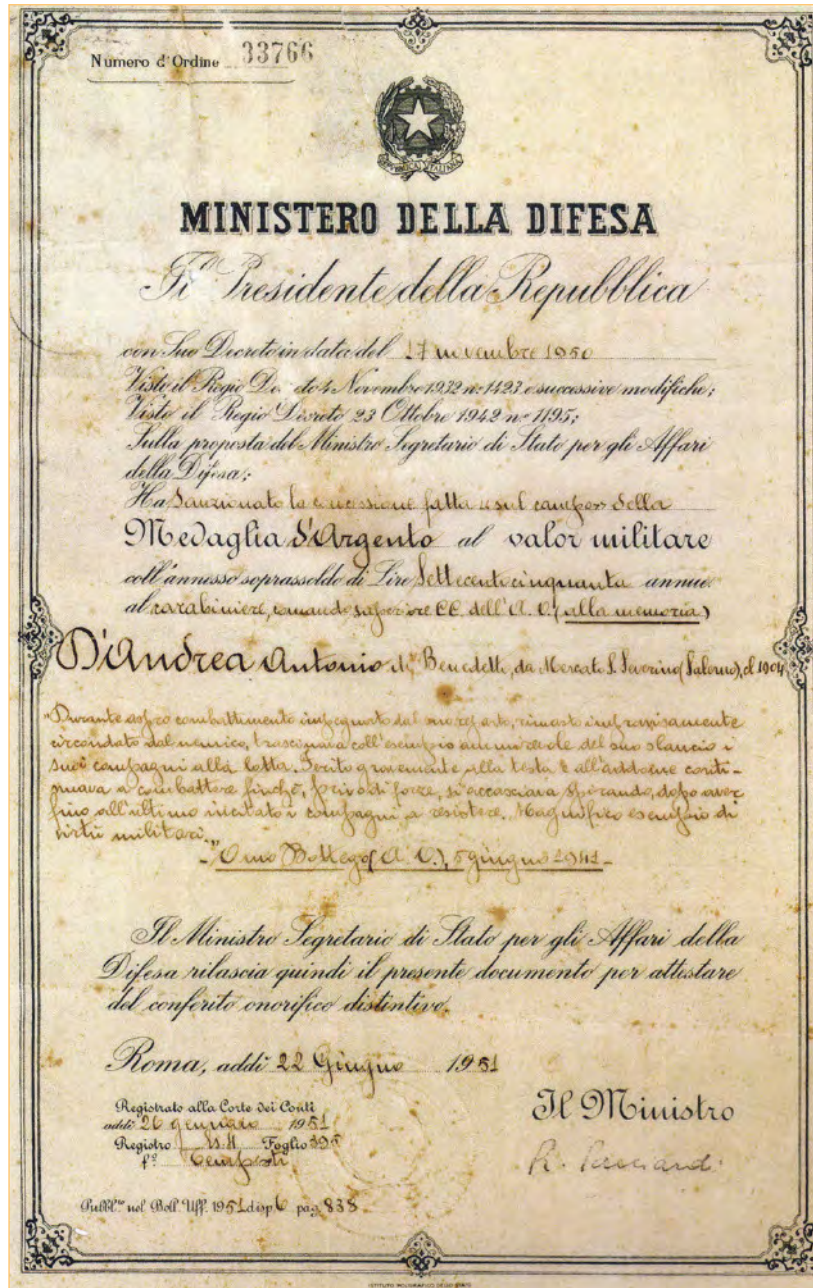 Numero d'Ordine 33766
REPVBBLICA ITALIANA
MINISTERO DELLA DIFESA
Il Presidente della Repubblica
con Suo Decreto in data del 17 novembre 1950
Visto il Regio De eto 4 Novembre 1932 nº 1423 e successive modifiche;
Visto il Regio Decreto 23 Ottobre 1942 nº 1195;
Sulla proposta del Ministro Segretario di Stato per gli Affari
della Difesa;
Ha Sanzionato la concessione fatta sul campo della
Medaglia d'Argento al valor militare
coll'annesso soprassoldo di Lire Settecentocinquanta annue
al carabiniere, comando superiore CC. dell'A. O. (alla memoria)
D'Andrea Antonio di Benedetto, da Mercato S. Severino (Salerno), cl. 1904
"Durante aspro combattimento impegnato dal suo reparto, rimasto improvvisamente
circondato dal nemico, trascinava coll'esempio ammirevole del suo slancio i
suoi compagni alla lotta. Ferito gravemente alla testa e all'addome conti-
nuava a combattere finché, privo di forze, si accasciava spirando, dopo aver
fino all'ultimo incitato i compagni a resistere. Magnifico esempio di
virtù militari."
-"Omo Bottego (A. O.), 5 giugno 1941-
Il Ministro Segretario di Stato per gli Affari della
Difesa rilascia quindi il presente documento per attestare
del conferito onorifico distintivo.
Roma, addì 22 Giugno 1951
Registrato alla Corte dei Conti
addì 26 gennaio 1951
Registro Foglio 395
fº
Il Ministro
R. Pacciardi
Pubbl.to nel Boll. Uff. 1951 disp. 6 pag. 838
ISTITUTO POLIGRAFICO DELLO STATO